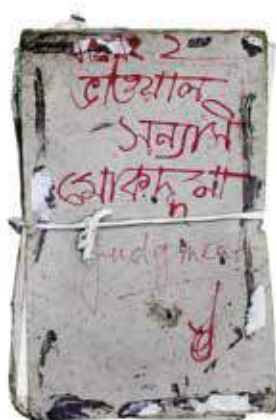 ২
ভাওয়াল
সন্যাসি
মোকদ্দমা
Judgment